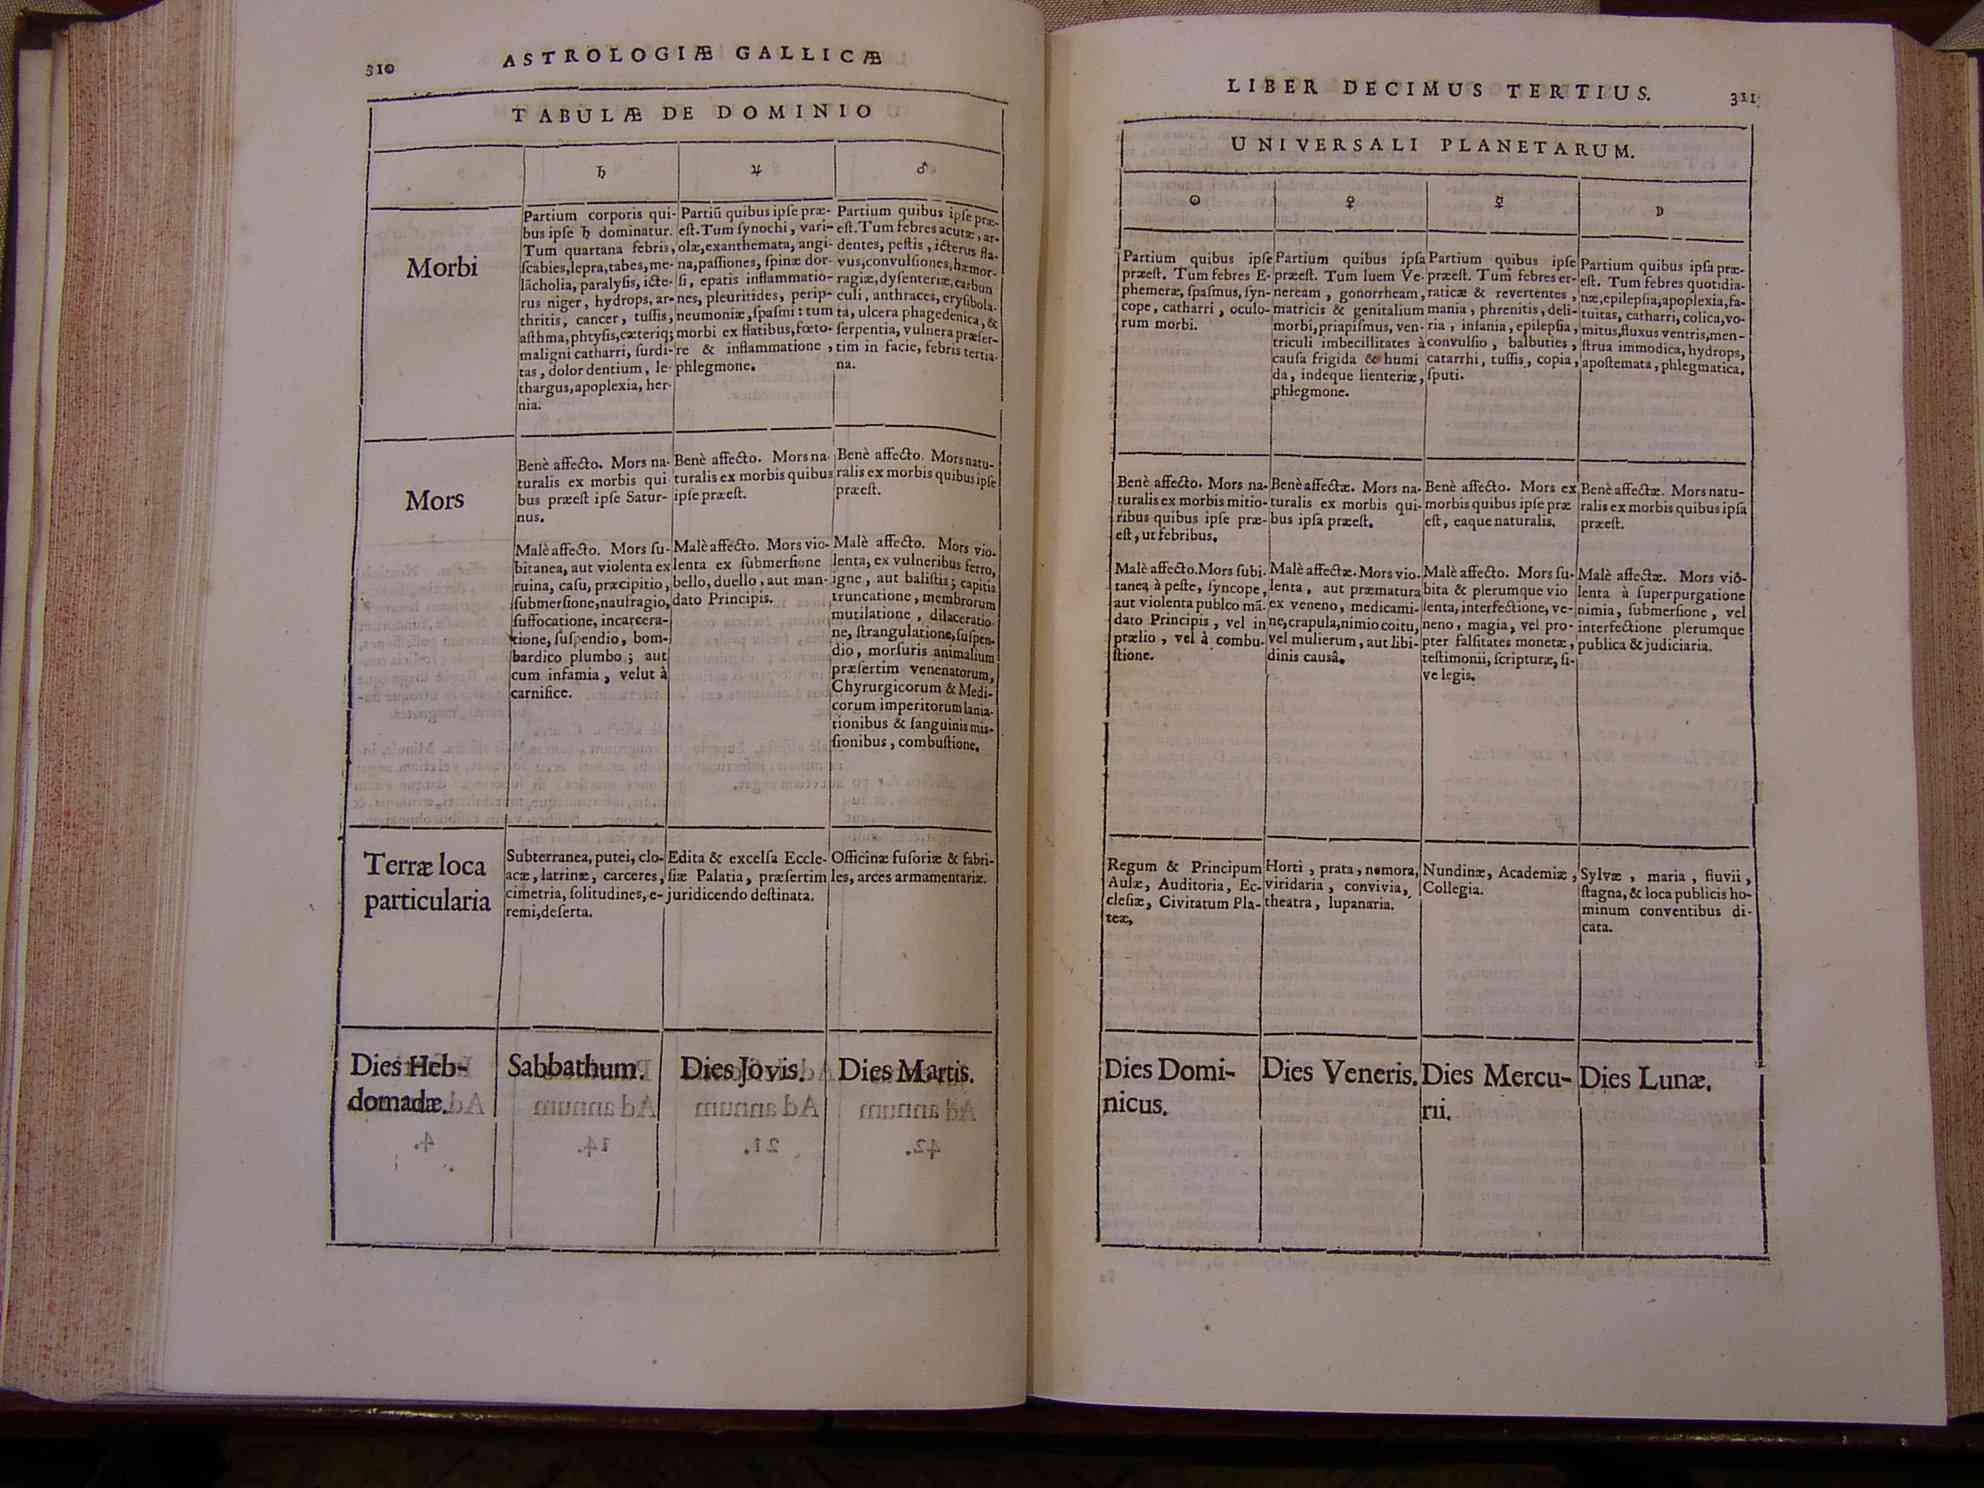 310 ASTROLOGIÆ GALLICÆ
TABULÆ DE DOMINIO
♄ ♃ ♂
Morbi
Partium corporis qui-
bus ipſe ♄ dominatur.
Tum quartana febris,
ſcabies, lepra, tabes, me-
lācholia, paralyſis, icte-
rus niger, hydrops, ar-
thritis, cancer, tuſſis,
aſthma, phtyſis, cæteriq;
maligni catharri, ſurdi-
tas, dolor dentium, le-
thargus, apoplexia, her-
nia.
Partiū quibus ipſe præ-
eſt. Tum ſynochi, vari-
olæ, exanthemata, angi-
na, paſſiones, ſpinæ dor-
ſi, epatis inflammatio-
nes, pleuritides, perip-
neumoniæ, ſpaſmi: tum
morbi ex flatibus, fœto-
re & inflammatione,
phlegmone.
Partium quibus ipſe præ-
eſt. Tum febres acutæ, ar-
dentes, peſtis, icterus fla-
vus, convulſiones, hæmor-
ragiæ, dyſenteriæ, carbun
culi, anthraces, eryſibola-
ta, ulcera phagedenica, &
ſerpentia, vulnera præſer-
tim in facie, febris tertia-
na.
Mors
Benè affecto. Mors na-
turalis ex morbis qui
bus præeſt ipſe Satur-
nus.
Malè affecto. Mors ſu-
bitanea, aut violenta ex
ruina, caſu, præcipitio,
ſubmerſione, naufragio,
ſuffocatione, incarcera-
tione, ſuſpendio, bom-
bardico plumbo; aut
cum infamia, velut à
carnifice.
Benè affecto. Mors na-
turalis ex morbis quibus
ipſe præeſt.
Malè affecto. Mors vio-
lenta ex ſubmerſione
bello, duello, aut man-
dato Principis.
Benè affecto. Mors natu-
ralis ex morbis quibus ipſe
præeſt.
Malè affecto. Mors vio-
lenta, ex vulneribus ferro,
igne, aut baliſtis; capitis
truncatione, membrorum
mutilatione, dilaceratio
ne, ſtrangulatione, ſuſpen-
dio, morſuris animalium
præſertim venenatorum,
Chyrurgicorum & Medi-
corum imperitorum lania-
tionibus & ſanguinis miſ-
ſionibus, combuſtione.
Terræ loca
particularia
Subterranea, putei, clo-
acæ, latrinæ, carceres,
cimetria, ſolitudines, e-
remi, deſerta.
Edita & excelſa Eccle-
ſiæ Palatia, præſertim
juridicendo deſtinata.
Officinæ fuſoriæ & fabri-
les, arces armamentariæ.
Dies Heb-
domadæ.
Sabbathum.
Dies Jovis.
Dies Martis.
LIBER DECIMUS TERTIUS. 311
UNIVERSALI PLANETARUM.
☉ ♀ ☿ ☽
Partium quibus ipſe
præeſt. Tum febres E-
phemeræ, ſpaſmus, ſyn-
cope, catharri, oculo-
rum morbi.
Partium quibus ipſa
præeſt. Tum luem Ve-
neream, gonorrheam,
matricis & genitalium
morbi, priapiſmus, ven-
triculi imbecillitates à
cauſa frigida & humi
da, indeque lienteriæ,
phlegmone.
Partium quibus ipſe
præeſt. Tum febres er-
raticæ & revertentes,
mania, phrenitis, deli-
ria, inſania, epilepſia,
convulſio, balbuties,
catarrhi, tuſſis, copia,
ſputi.
Partium quibus ipſa præ-
eſt. Tum febres quotidia-
næ, epilepſia, apoplexia, fa-
tuitas, catharri, colica, vo-
mitus, fluxus ventris, men-
ſtrua immodica, hydrops,
apoſtemata, phlegmatica.
Benè affecto. Mors na-
turalis ex morbis mitio-
ribus quibus ipſe præ-
eſt, ut febribus.
Malè affecto. Mors ſubi-
tanea à peſte, ſyncope,
aut violenta publco mā-
dato Principis, vel in
prælio, vel à combu-
ſtione.
Benè affectæ. Mors na-
turalis ex morbis qui-
bus ipſa præeſt.
Malè affectæ. Mors vio-
lenta, aut præmatura
ex veneno, medicami-
ne, crapula, nimio coitu,
vel mulierum, aut libi-
dinis causâ.
Benè affecto. Mors ex
morbis quibus ipſe præ
eſt, eaque naturalis.
Malè affecto. Mors ſu-
bita & plerumque vio
lenta, interfectione, ve-
neno, magia, vel pro-
pter falſitates monetæ,
teſtimonii, ſcripturæ, ſi-
ve legis.
Benè affectæ. Mors natu-
ralis ex morbis quibus ipſa
præeſt.
Malè affectæ. Mors vio-
lenta à ſuperpurgatione
nimia, ſubmerſione, vel
interfectione plerumque
publica & judiciaria.
Regum & Principum
Aulæ, Auditoria, Ec-
cleſiæ, Civitatum Pla-
teæ,
Horti, prata, nemora,
viridaria, convivia,
theatra, lupanaria.
Nundinæ, Academiæ,
Collegia.
Sylvæ, maria, fluvii,
ſtagna, & loca publicis ho-
minum conventibus di-
cata.
Dies Domi-
nicus.
Dies Veneris.
Dies Mercu-
rii.
Dies Lunæ.